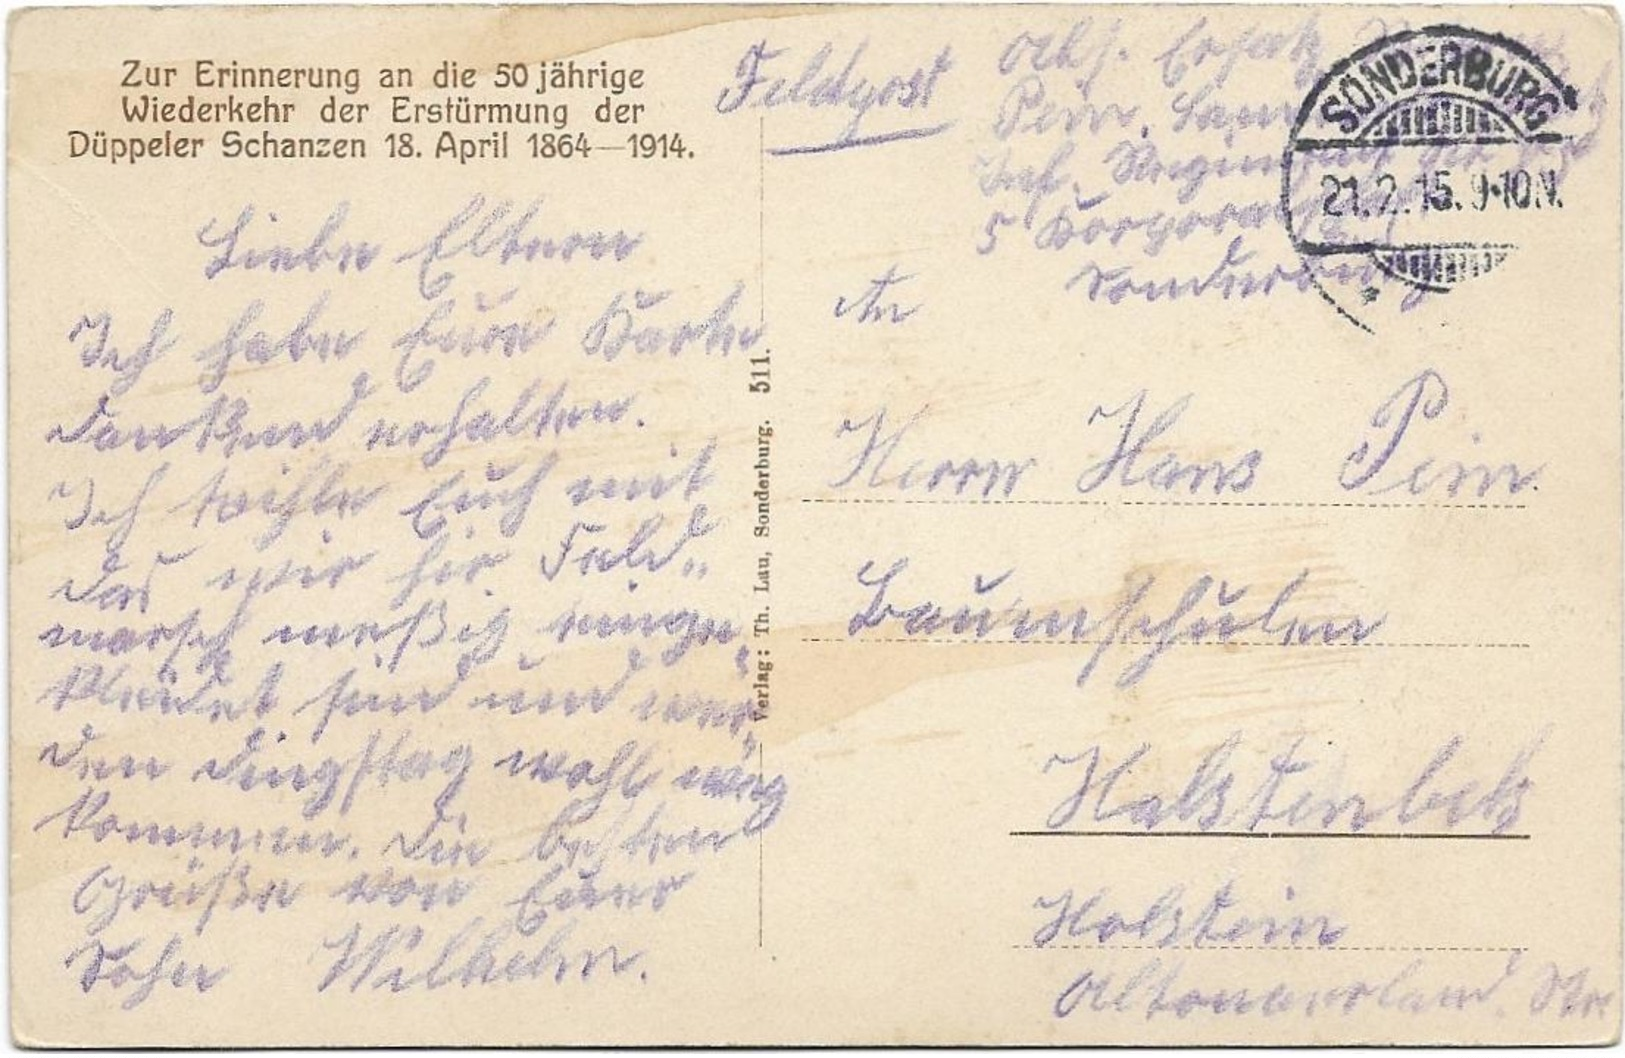 Zur Erinnerung an die 50 jährige
Wiederkehr der Erstürmung der
Düppeler Schanzen 18. April 1864—1914.
Liebe Eltern
Ich habe Eure Karte
dankend erhalten.
Ich teihle Euch mit
das wir hir Feld„
marsch meßig einge„
kleidet sind und wer„
den dingstag wohl weg
kommen. Die besten
Grüße von Euer
Sohn Wilhelm.
Verlag: Th. Lau, Sonderburg. 511.
Feldpost
Ers.
Pein.
Inf. Regiment
5 Korporalschaft
Sonderburg
SONDERBURG
21.2.15. 9-10N.
An
Herrn Hans Pein.
Baumschulen
Halstenbek
Holstein
Altonaer